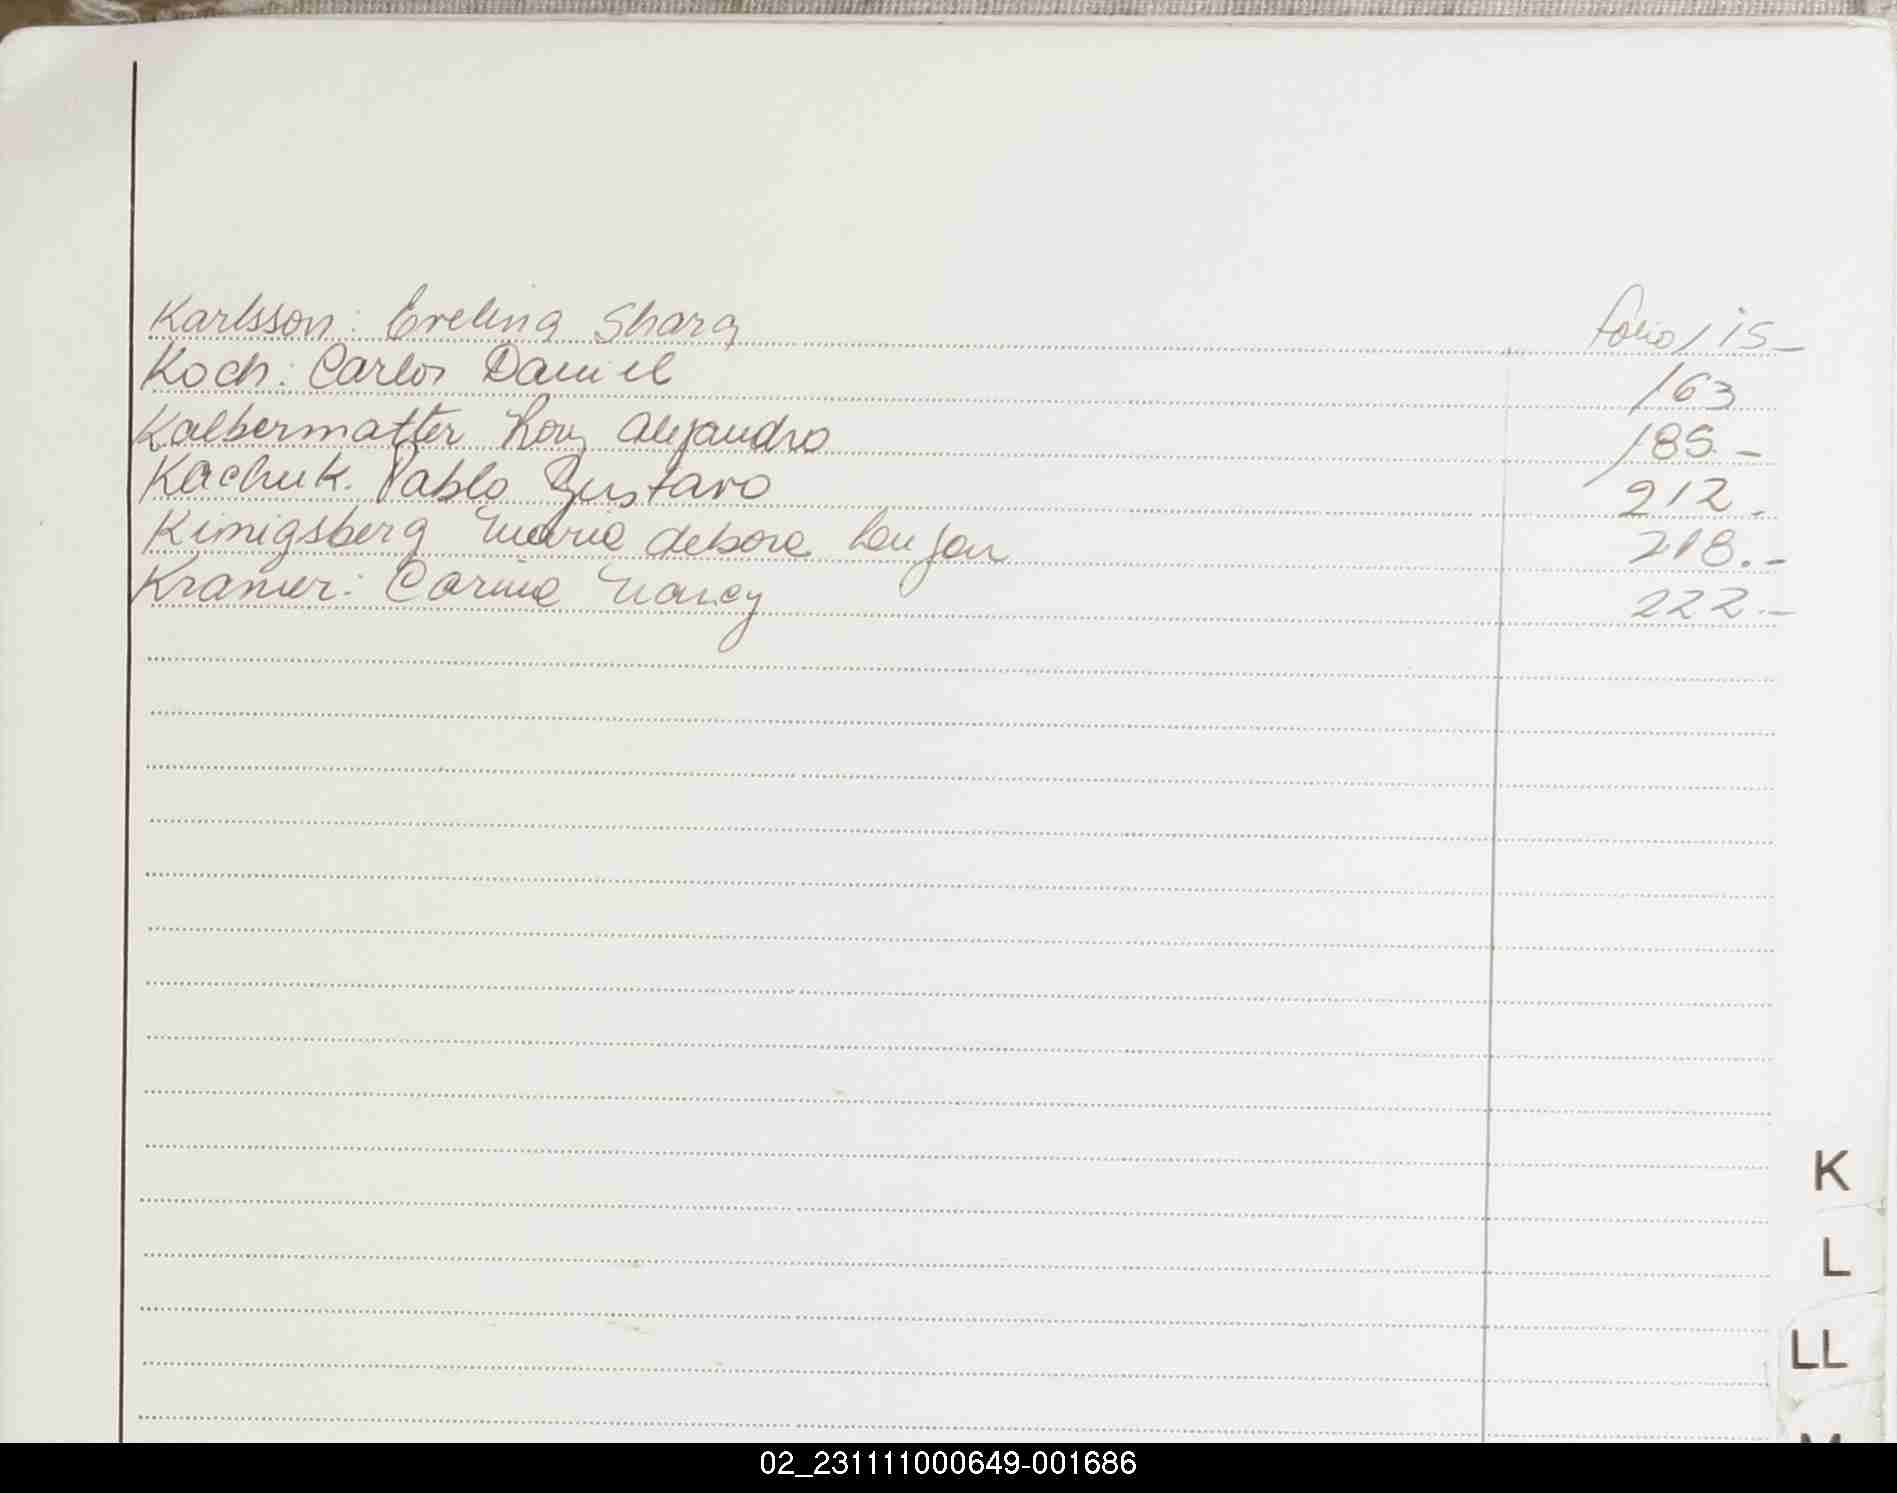 Karlsson: Evelina Shara folio 115-
Koch: Carlos Daniel 163
Kalbermatter Rony Alejandro 185.-
Kachuk. Pablo Gustavo 212.
Kimigsberg Maria debora Lujan 218.-
Kramer: Carina Nancy 222.-
K
L
LL
M
02_231111000649-001686